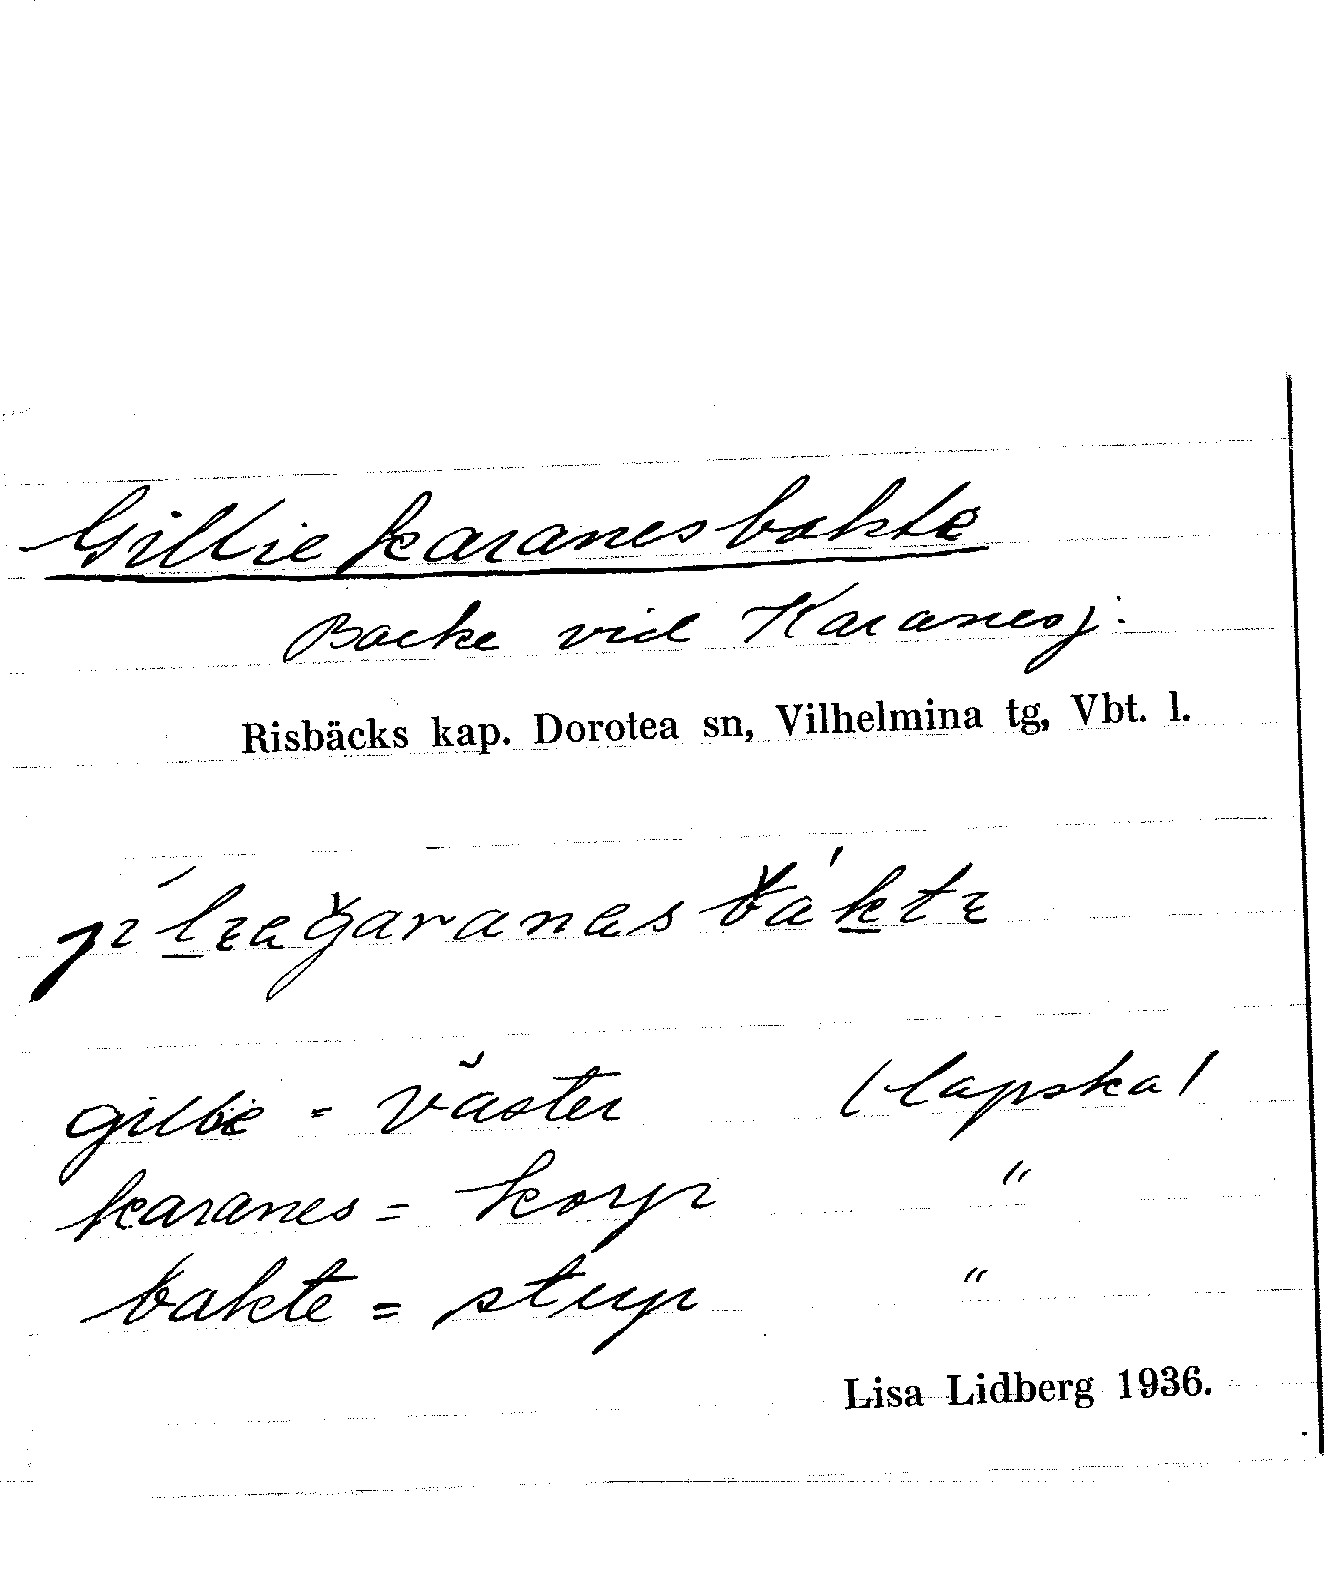 Gillie karanesbakte
Backe vid Karanesj.
Risbäcks kap. Dorotea sn, Vilhelmina tg, Vbt. l.
gillie = väster (lapska)
karanes = korp "
bakte = stup "
Lisa Lidberg 1936.